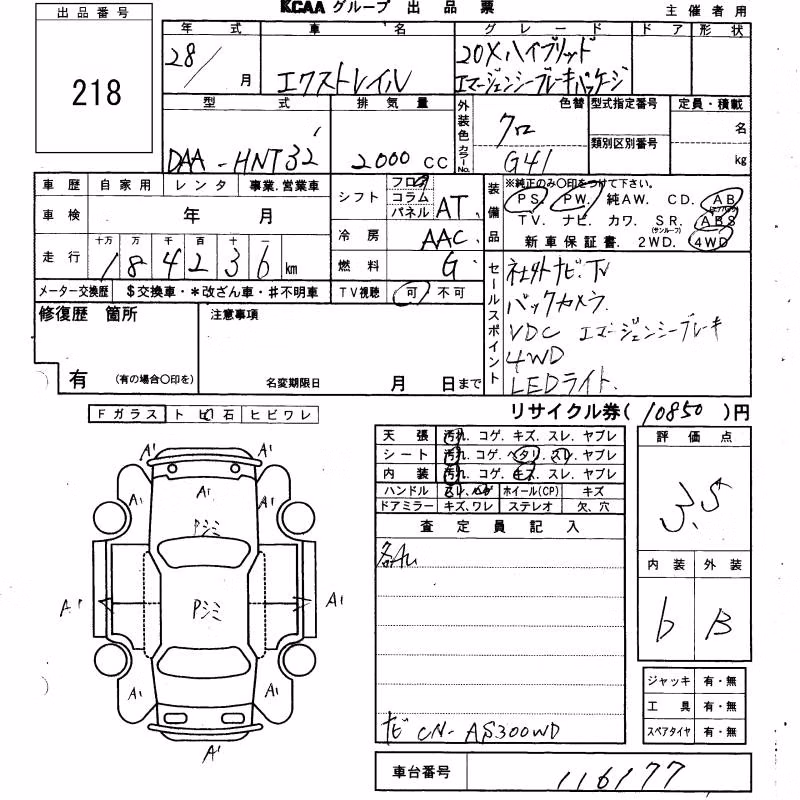 出品番号
218
KCAA グループ 出品票
主催者用
年式
車名
グレード
ドア
形状
28/ 月
エクストレイル
20Xハイブリッド
エマージェンシーブレーキパッケージ
型式
排気量
外装色
カラーNo.
色替
型式指定番号
定員・積載
DAA-HNT32
2000 CC
クロ
G41
類別区別番号
名
kg
車歴 自家用 レンタ 事業.営業車
車検 年 月
走行 十万 万 千 百 十 一
184236 km
メーター交換歴 $交換車・*改ざん車・#不明車
シフト
フロア
コラム
パネル
AT
冷房 AAC
燃料 G
TV視聴 可 不可
装備品
※純正のみ○印をつけて下さい。
PS. PW. 純AW. CD. AB
(エアバック)
TV. ナビ. カワ. SR. ABS
(サンルーフ)
新車保証書. 2WD. 4WD
セールスポイント
社外ナビ.TV
バックカメラ.
VDC エマージェンシーブレーキ
4WD
LEDライト.
修復歴 箇所
有 (有の場合○印を)
注意事項
名変期限日 月 日まで
リサイクル券( 10850 )円
Fガラス トビ石 ヒビワレ
天張 汚れ. コゲ. キズ. スレ. ヤブレ
シート 汚れ. コゲ. ヘタリ. スレ. ヤブレ
内装 汚れ. コゲ. キズ. スレ. ヤブレ
ハンドル スレ. ハゲ ホイール(CP) キズ
ドアミラー キズ、ワレ ステレオ 欠、穴
査定員記入
各AU
ナビ CN-AS300WD
評価点
3.5
内装 外装
b B
ジャッキ 有・無
工具 有・無
スペアタイヤ 有・無
車台番号 116177
A1
A1
A1
A1
Pシミ
A1
Pシミ
A1
A1
A1
A1